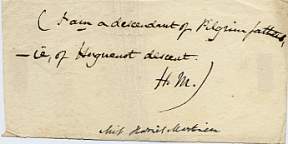 ( I am a descendant of Pilgrim fathers,
— ie, of Huguenot descent.
H. M. )
Miss Harriet Martineau